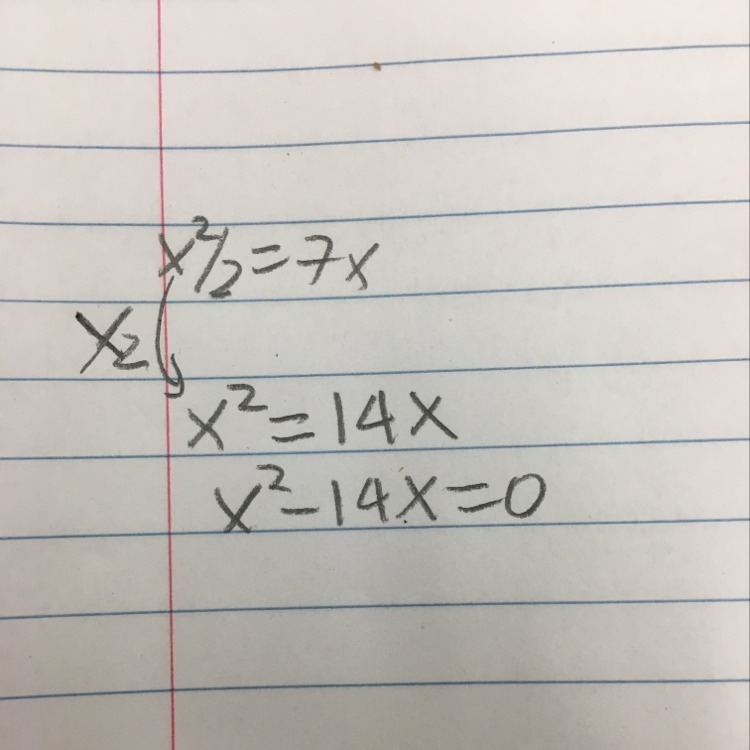 x²/2 = 7x
×2
x² = 14x
x² - 14x = 0